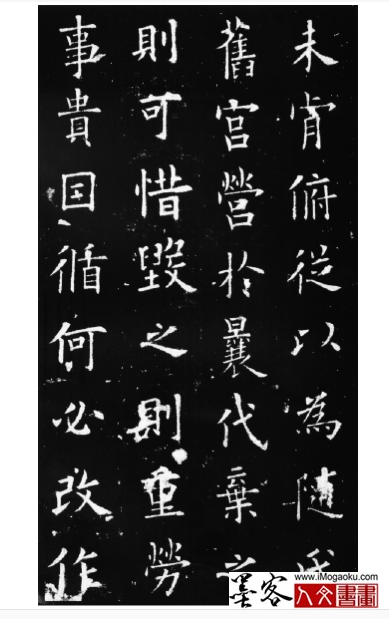 未肯俯從以為隨氏
舊宮營於曩代棄之
則可惜毀之則重勞
事貴因循何必改作
墨客
www.iMogaoku.com
人文書畫